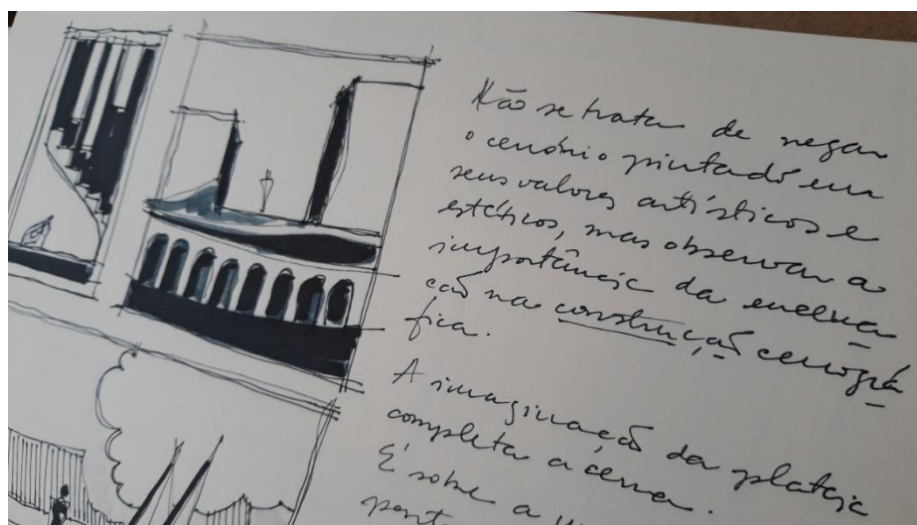 Não se trata de negar
o cenário pintado em
seus valores artísticos e
estéticos, mas observar a
importância da encena
ção na construção cenográ
fica.
A imaginação da plateia
completa a cena.
É sobre a